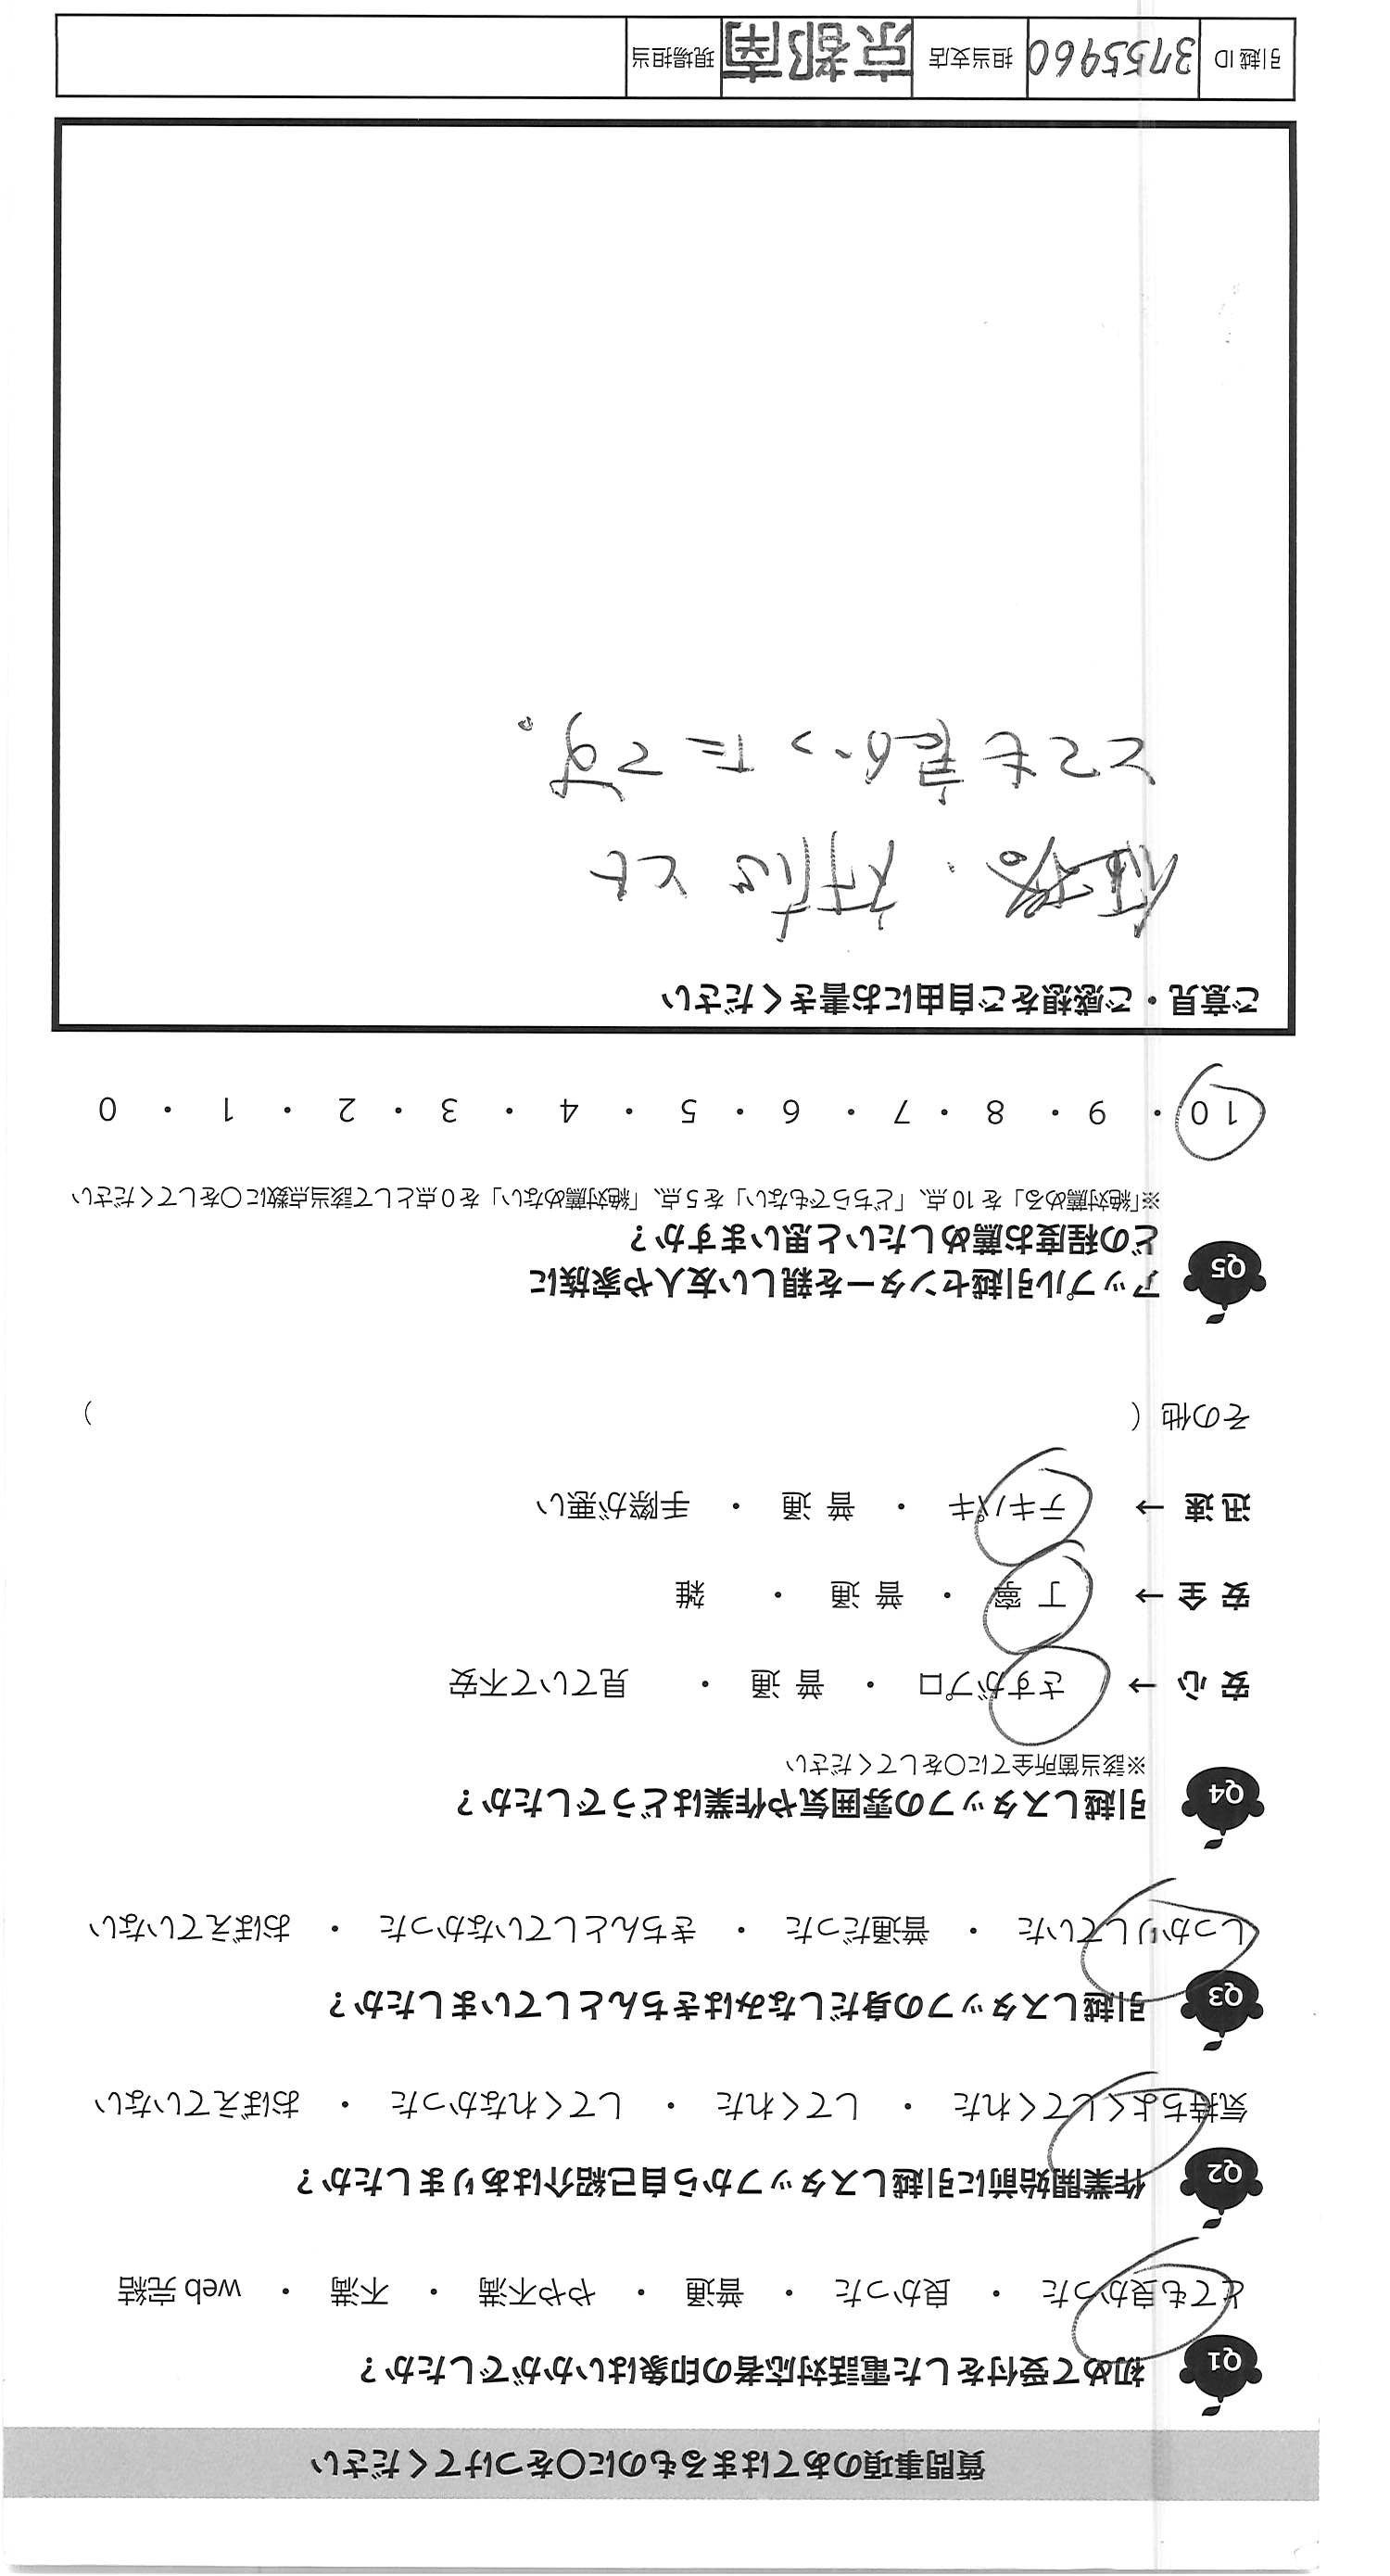 質問事項のあてはまるものに〇をつけてください
Q1 初めて受付をした電話対応者の印象はいかがでしたか？
とても良かった ・ 良かった ・ 普通 ・ やや不満 ・ 不満 ・ web完結
Q2 作業開始前に引越しスタッフから自己紹介はありましたか？
気持ちよくしてくれた ・ してくれた ・ してくれなかった ・ おぼえていない
Q3 引越しスタッフの身だしなみはきちんとしていましたか？
しっかりしていた ・ 普通だった ・ きちんとしていなかった ・ おぼえていない
Q4 引越しスタッフの雰囲気や作業はどうでしたか？
※該当箇所全てに〇をしてください
安心→ さすがプロ ・ 普通 ・ 見ていて不安
安全→ 丁寧 ・ 普通 ・ 雑
迅速→ テキパキ ・ 普通 ・ 手際が悪い
その他（ ）
Q5 アップル引越センターを親しい友人や家族に
どの程度お薦めしたいと思いますか？
※「絶対薦める」を10点、「どちらでもない」を5点、「絶対薦めない」を0点として該当点数に〇をしてください
10 ・ 9 ・ 8 ・ 7 ・ 6 ・ 5 ・ 4 ・ 3 ・ 2 ・ 1 ・ 0
ご意見・ご感想をご自由にお書きください
価格・対応とも
とても良かったです。
引越ID 3755960 担当支店 京都南 現場担当